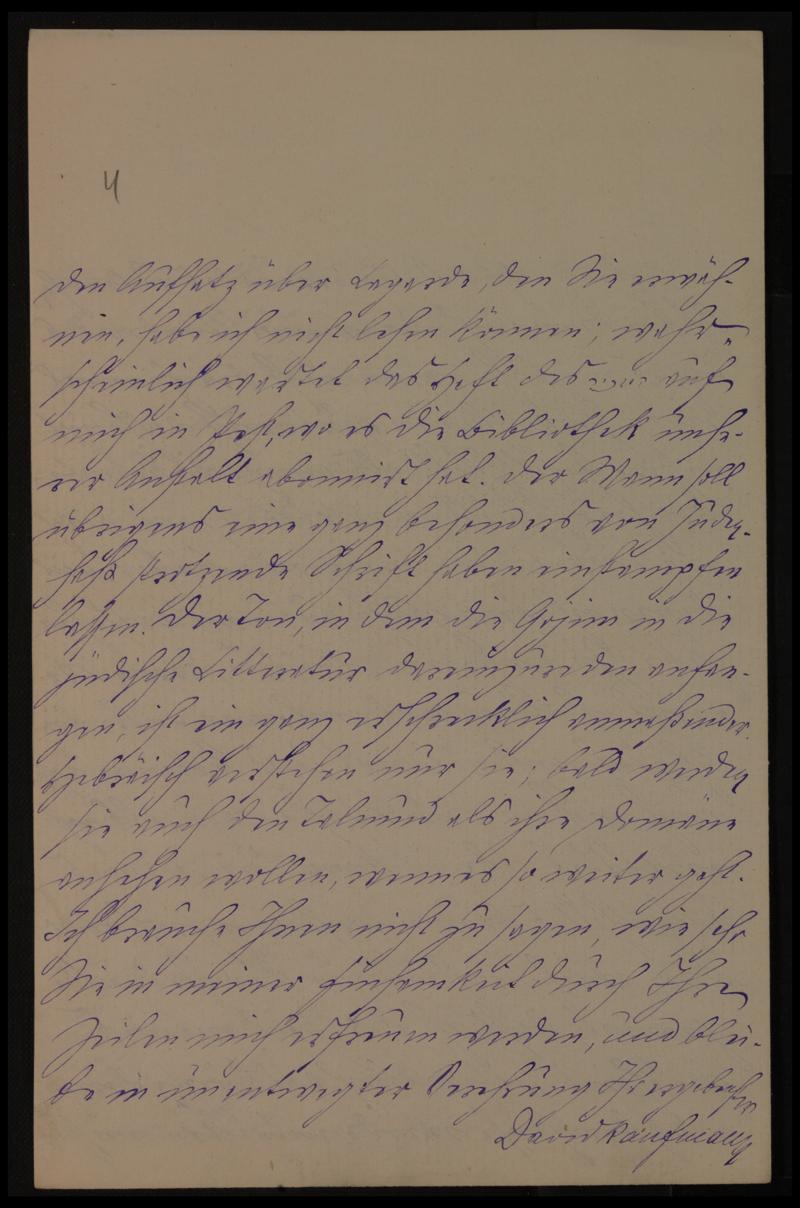 4
den Aufsatz über Lagarde, den Sie erwäh-
nen, habe ich nicht lesen können; wahr-
scheinlich wartet das Heft des auf
mich in Pest, wo es die Bibliothek unse-
rer Anstalt abonnirt hat. Der Mann soll
übrigens eine ganz besonders von Juden-
haß strotzende Schrift haben einstampfen
lassen. Der Ton, in dem die Gojim in die
jüdische Litteratur dareinzureden anfan-
gen, ist ein ganz erschrecklich anmaßender.
Hebräisch verstehen nur sie; bald werden
sie auch den Talmud als ihre Domäne
ansehen wollen, wenn es so weiter geht.
Ich brauche Ihnen nicht zu sagen, wie sehr
Sie in meiner Einsamkeit durch Ihre
Zeilen mich erfreuen werden, und blei-
be in unentwegter Verehrung Ihr ergebenster
David Kaufmann